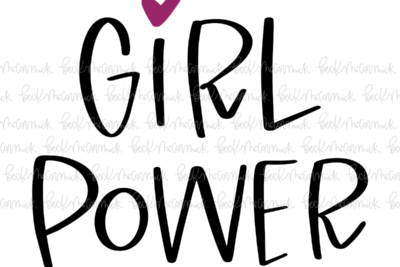 GIRL
POWER